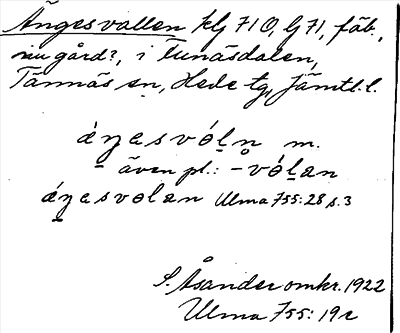 Ängesvallen klj 710, lj 71, fäb.,
nu gård?, i Funäsdalen,
Tännäs sn, Hede tg, Jämtl.l.
áŋasvóln m.
även pl.: -vólan
áŋasvolan Ulma 755:28 s.3
S. Åsander omkr. 1922
Ulma 755:19 r